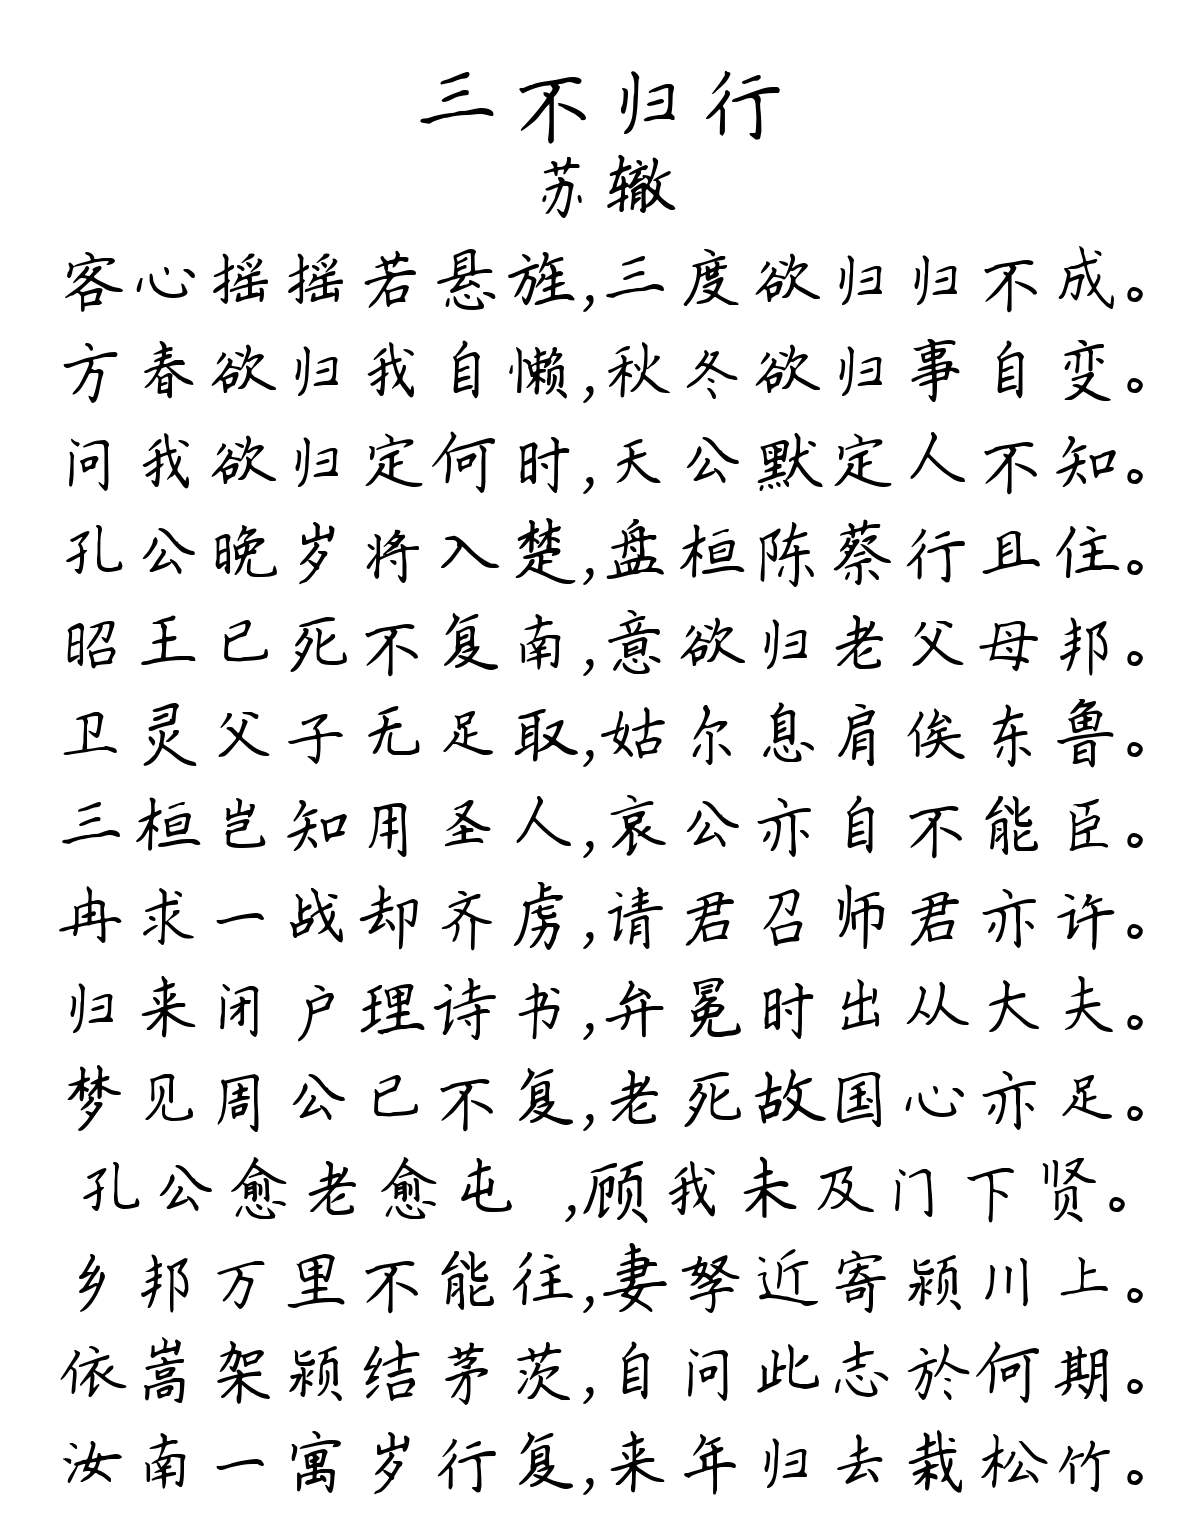 三不归行
苏辙
客心摇摇若悬旌,三度欲归归不成。
方春欲归我自懒,秋冬欲归事自变。
问我欲归定何时,天公默定人不知。
孔公晚岁将入楚,盘桓陈蔡行且住。
昭王已死不复南,意欲归老父母邦。
卫灵父子无足取,姑尔息肩俟东鲁。
三桓岂知用圣人,哀公亦自不能臣。
冉求一战却齐虏,请君召师君亦许。
归来闭户理诗书,弁冕时出从大夫。
梦见周公已不复,老死故国心亦足。
孔公愈老愈屯 ,顾我未及门下贤。
乡邦万里不能往,妻孥近寄颍川上。
依嵩架颍结茅茨,自问此志於何期。
汝南一寓岁行复,来年归去栽松竹。